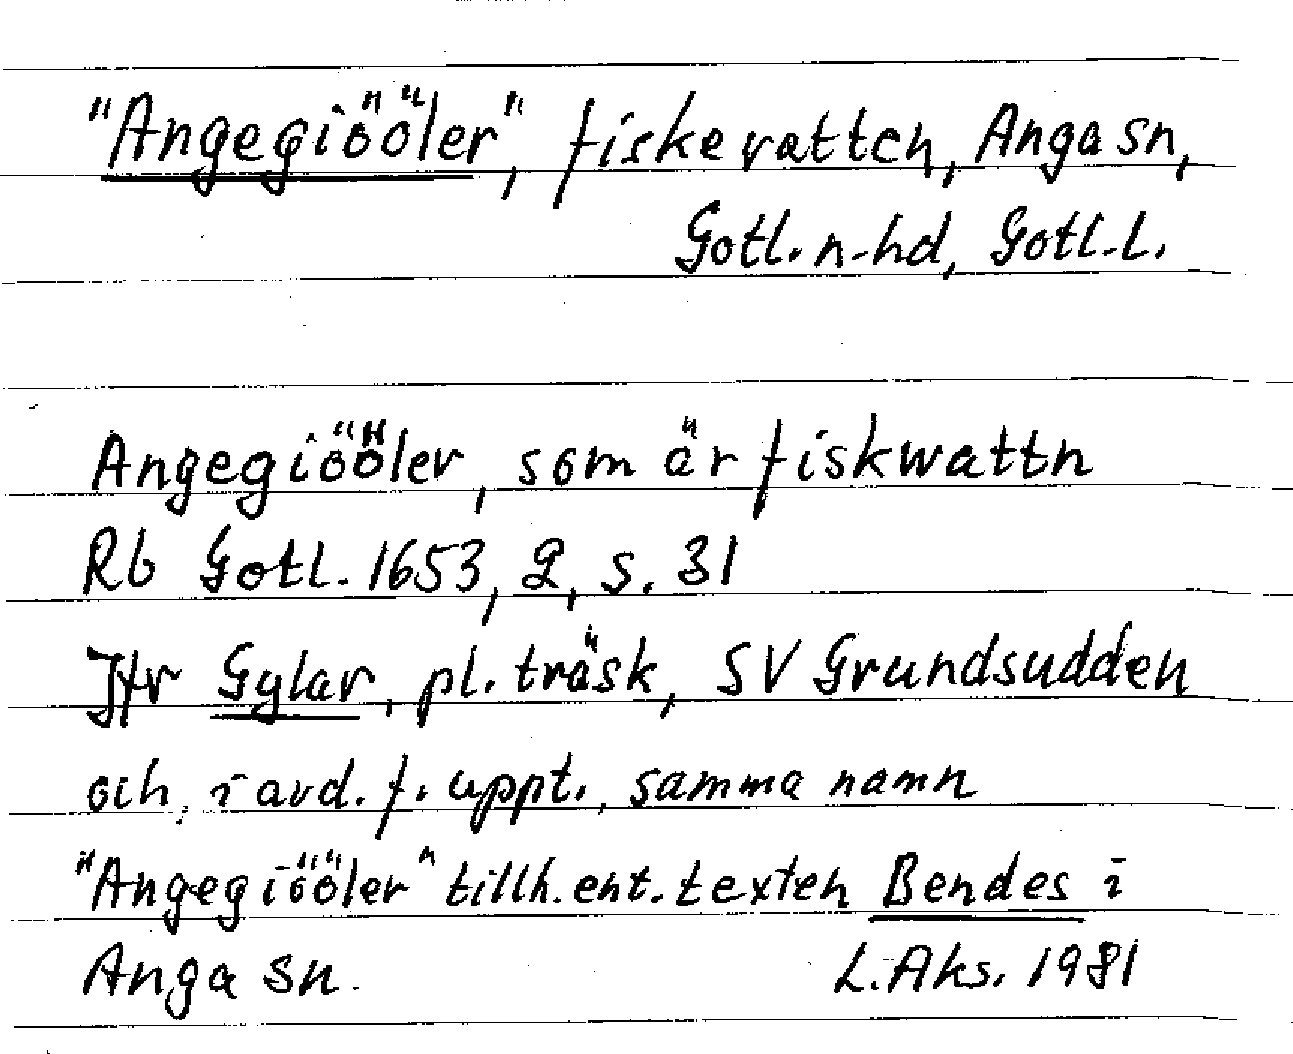 "Angegiööler", fiskevatten, Anga sn,
Gotl. n-hd, Gotl. l.
Angegiööler, som är fiskwattn
Rb Gotl. 1653, 2, s. 31
Jfr Gylar, pl. träsk, SV Grundsudden
och, i avd. f. uppt., samma namn
"Angegiööler" tillh. ent. texten Bendes i
Anga sn. L. Aks. 1981